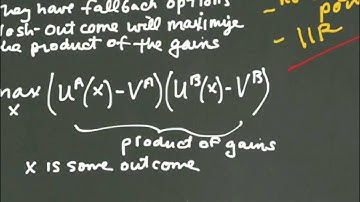 they have fallback options
Nash-outcome will maximize
the product of the gains
max (U^A(x)-V^A)(U^B(x)-V^B)
x
product of gains
x is some outcome
- IIR